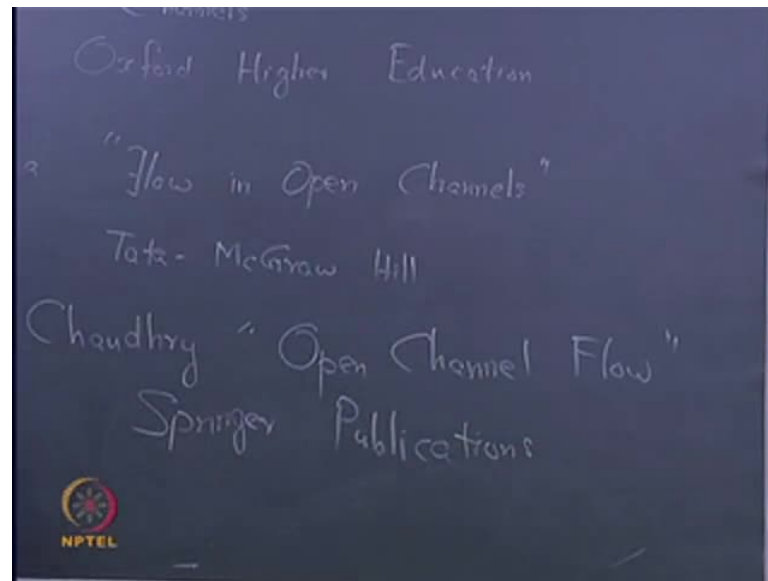 Channels
Oxford Higher Education
a "Flow in Open Channels"
Tata - McGraw Hill
Chaudhry "Open Channel Flow"
Springer Publications
NPTEL